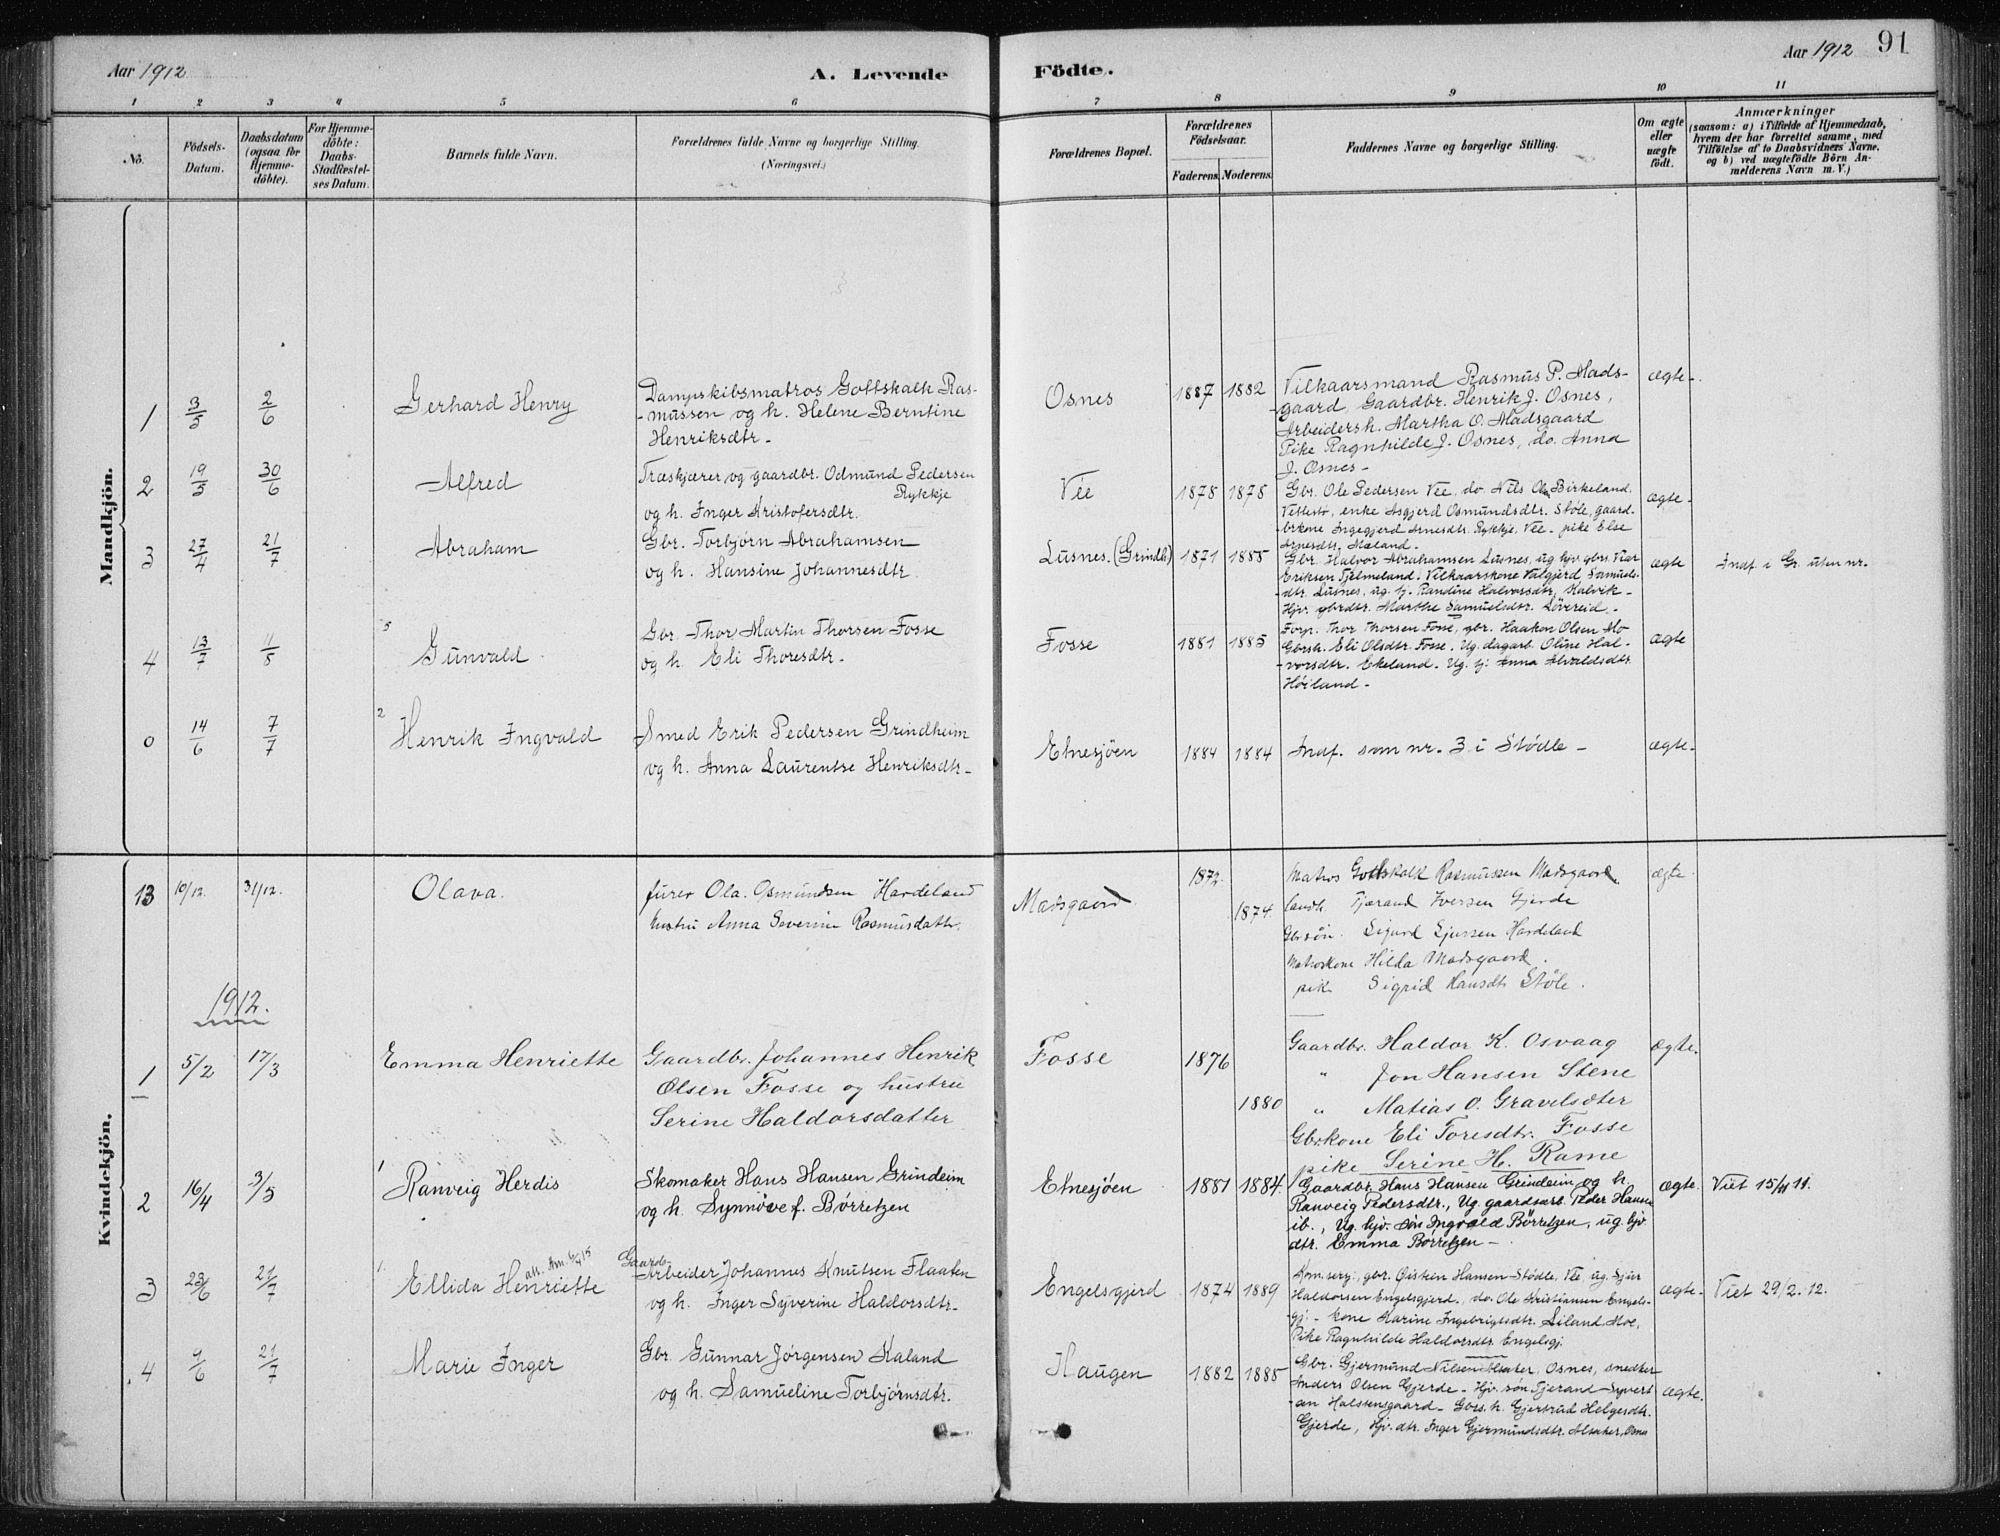 Aar 1912
A. Levende
Födte.
Aar 1912
91
1 2 3 4 5 6 7 8 9 10 11
No.
Födsels-
Datum.
Daabsdatum
(ogsaa for
Hjemme-
döbte).
For Hjemme-
döbte:
Daabs-
Stadfæstel-
ses Datum.
Barnets fulde Navn.
Forældrenes fulde Navne og borgerlige Stilling.
(Næringsvei.)
Forældrenes Bopæl.
Forældrenes
Födselsaar.
Faderens. Moderens.
Faddernes Navne og borgerlige Stilling.
Om ægte
eller
uægte
födt.
Anmærkninger
(saasom: a) i Tilfælde af Hjemmedaab,
hvem der har forrettet samme, med
Tilföielse af to Daabsvidners Navne,
og b) ved uægtefödte Börn An-
melderens Navn m. V.)
Mandkjön.
1 3/5 2/6 Gerhard Henry
Dampskibsmatros Gottskalk Ras-
-mussen og h. Helene Berntine
Henriksdtr -
Osnes 1887 1882
Vilkaarsmand Rasmus P. Mads-
-gaard, Gaardbr. Henrik J. Osnes,
Arbeidersh. Martha O. Madsgaard
Pike Ragnhilde J. Osnes, do. Anna
J. Osnes -
ægte -
2 19/5 30/6 Alfred
Træskjærer og gaardbr. Odmund Pedersen
Rykkje
og h. Inger Kristofersdtr.
Vee 1878 1878
Gbr. Ole Pedersen Vee, do. Nils Ols. Birkeland.
Vettestø, enke Asgjerd Osmundsdtr. Støle, gaard-
brkone Ingegjerd Arnesdtr. Rykkje, Vee - pike Else
Arnesdtr. Mæland -
ægte -
3 27/4 21/7 Abraham
Gbr. Torbjørn Abrahamsen
og h. Hansine Johannesdtr
Lusnes. (Grindh) 1871 1885
Gbr. Halvor Abrahamsen Lusnes, ug hjv. gbrs. Ivar
Eriksen Tjelmeland. Vilkaarskone Valgjerd Samuels-
dtr. Lusnes, ug. tj. Randine Halvorsdtr, Kalvik -
Hjv. gbrdtr. Marthe Samuelsdtr. Løvereid -
ægte
Indf. i Gr. uten nr.
4 13/7 11/8 5 Gunvald
Gbr. Thor Martin Thorsen Fosse
og h. Eli Thoresdtr -
Fosse 1881 1885
Forp. Thor Thorsen Fosse, gbr. Haakon Olsen Mo
Gbrsh. Eli Olsdtr. Fosse. Ug. dagarb. Oline Hal-
-vorsdtr. Ekeland. Ug. tj. Anna Alvaldsdtr.
Høiland -
ægte
0 14/6 7/7 2 Henrik Ingvald
Smed Erik Pedersen Grindheim
og h. Anna Laurentse Henriksdtr -
Etnesjöen 1884 1884
Indf. som nr. 3 i Stødle -
ægte -
Kvindekjön.
13 10/12. 31/12. Olava.
fører Ola. Osmundsen Hardeland
hustru Anna Severine Rasmusdattr.
Madsgaard 1872. 1874.
Matros Gottskalk Rasmussen Madsgaard.
landh. Tjærand Iversen Gjerde
Gbrsøn. Sigurd Sjursen Hardeland
Matroskone Hilda Madsgaard.
pik Sigrid Hansdtr Støle.
ægte
1912.
1 5/2 17/3 Emma Henriette
Gaardbr. Johannes Henrik
Olsen Fosse og hustru
Serine Haldorsdatter
Fosse 1876 1880
Gaardbr. Haldor K. Osvaag
" Jon Hansen Stene
" Matias O. Gravelsæter
Gbrkone Eli Toresdtr. Fosse
pike Serine H. Rame
ægte.
2 16/4 3/5 1 Ranveig Herdis
Skomaker Hans Hansen Grindeim
og h. Synnöve f. Börretzen
Etnesjöen 1881 1884.
Gaardbr. Hans Hansen Grindeim og h.
Ranveig Pedersdtr., Ug. gaardsarb. Peder Hansen
ib., Ug. hjv. søn Ingvald Börretzen, ug. hjv
dtr. Emma Börretzen -
ægte. Viet 15/11 11.
3 23/6 21/7 1. Ellida Henriette
Gaards-
Arbeider Johannes Knutsen Flaaten
og h. Inger Syverine Haldorsdtr -
Engelsgjerd 1874 1889
Kom.serg., gbr. Øistein Hansen Stødle, Vee, ug. Sjur
Haldorsen Engelsgjerd, do. Ole Kristiansen Engels-
gj. - kone Karine Ingebrigtsdtr. Seiland Moe,
Pike Ragnhilde Haldorsdtr. Engelsgj.
ægte - Viet 29/2. 12.
4 9/6 21/7 Marie Inger
Gbr. Gunnar Jørgensen Kaland
og h. Samueline Torbjørnsdtr.
Haugen 1882 1885
Gbr. Gjermund Nilsen Alsaker, Osnes, snedker
Anders Olsen Gjerde - Hjv. søn Tjerand Syvert
-sen Halstensgaard - Gbrs. h. Gjertrud Helgesdtr.
Gjerde, Hjv. dtr. Inger Gjermundsdtr. Alsaker, Osnes
ægte.